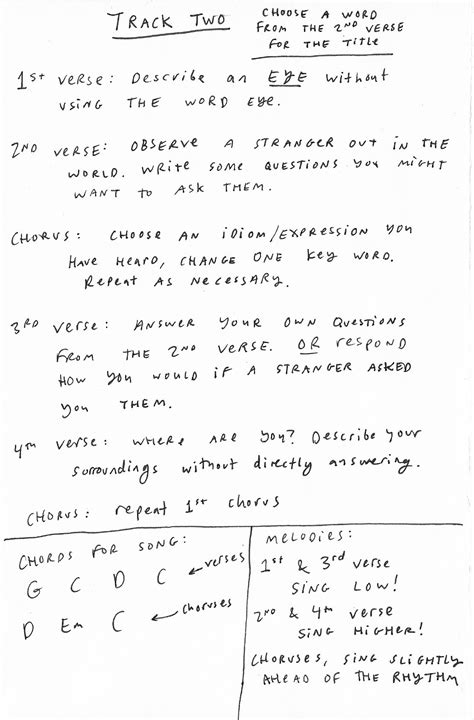 TRACK TWO
CHOOSE A WORD
FROM THE 2ND VERSE
FOR THE TITLE
1st verse: Describe an EYE without
using THE WORD EYE.
2ND VERSE: OBSERVE A STRANGER OUT IN THE
WORLD. WRITE SOME QUESTIONS YOU MIGHT
WANT TO ASK THEM.
CHORUS: CHOOSE AN IDIOM/EXPRESSION YOU
HAVE HEARD, CHANGE ONE KEY WORD.
REPEAT AS NECESSARY.
3RD VERSE: ANSWER YOUR OWN QUESTIONS
FROM THE 2ND VERSE. OR RESPOND
HOW YOU WOULD IF A STRANGER ASKED
YOU THEM.
4TH VERSE: WHERE ARE YOU? Describe your
surroundings without directly answering.
CHORUS: repeat 1st chorus
CHORDS FOR SONG:
G C D C ← verses
D Em C ← choruses
MELODIES:
1st & 3rd verse
SING LOW!
2ND & 4th verse
SING HIGHER!
CHORUSES, SING SLIGHTLY
AHEAD OF THE RHYTHM